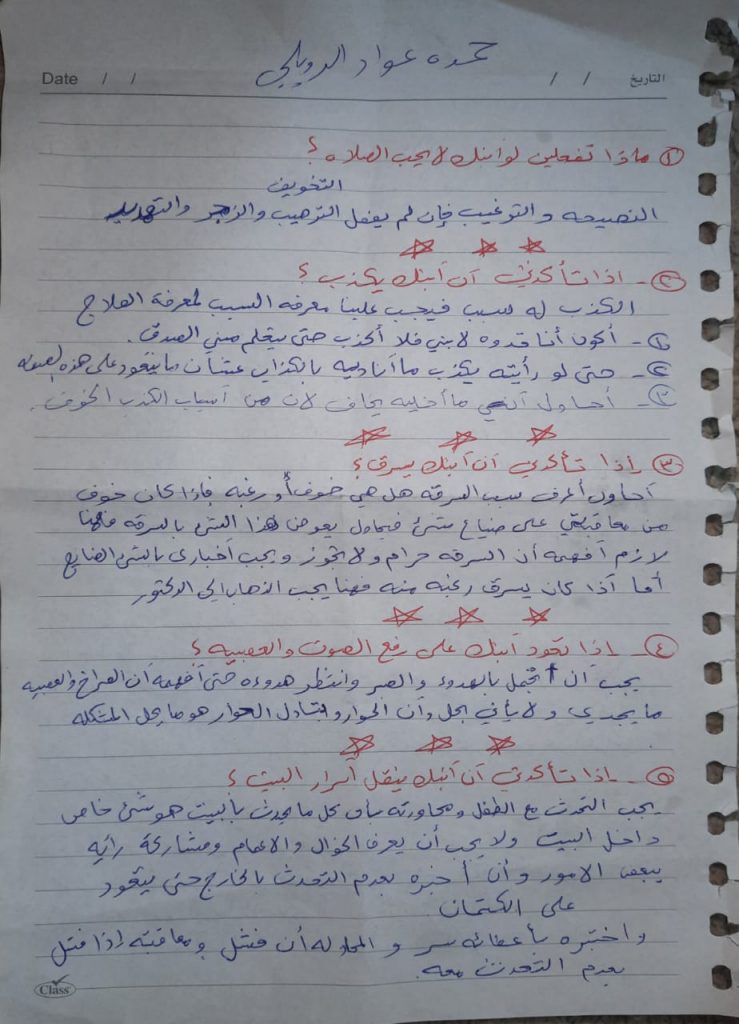 حمده عواد الرويلي
Date / / / / التاريخ
① ماذا تفعلين لو ابنك لا يحب الصلاه ؟
التخويف
النصيحه والترغيب فإن لم يفعل الترهيب والزجر والتهديد
② - اذا تأكدتي أن أبنك يكذب ؟
الكذب له سبب فيجب علينا معرفه السبب لمعرفة العلاج
① - أكون أنا قدوه لابني فلا أكذب حتى يتعلم مني الصدق .
② - حتى لو رأيته يكذب ما أناديه بالكذاب عشان ما يتعود على هذه الصفه
③ - أحاول أني ما أخليه يخاف لان من أسباب الكذب الخوف .
③ - إذا تأكدتي أن أبنك يسرق ؟
أحاول أعرف سبب السرقه هل هي خوف أو رغبه فإذا كان خوف
من معاقبتي على ضياع شئ فيحاول يعوض هذا الشئ بالسرقه فهنا
لازم أفهمه أن السرقه حرام ولا تجوز ويجب أخباري بالشئ الضايع
أما أذا كان يسرق رغبه منه فهنا يجب الذهاب الي الدكتور
④ - اذا تعود أبنك على رفع الصوت والعصبيه ؟
يجب أن أتحمل بالهدوء والصبر وانتظر هدوءه حتى أفهمه أن الصراخ والعصبيه
ما يجدي ولا يأتي بحل وأن الحوار وتبادل الحوار هو ما يحل المشكله
⑤ - اذا تأكدتي أن أبنك ينقل أسرار البيت ؟
يجب التحدث مع الطفل ومحاورته بأن كل ما يحدث بالبيت هو شئ خاص
داخل البيت ولا يجب أن يعرف الخوال والاعمام ومشاركة رائيه
ببعض الامور وأن أخبره بعدم التحدث بالخارج حتى يتعود
على الكتمان
واختبره بأعطائه سر و المحاوله أن فشل ومعاقبته إذا فشل
بعدم التحدث معه .
Class